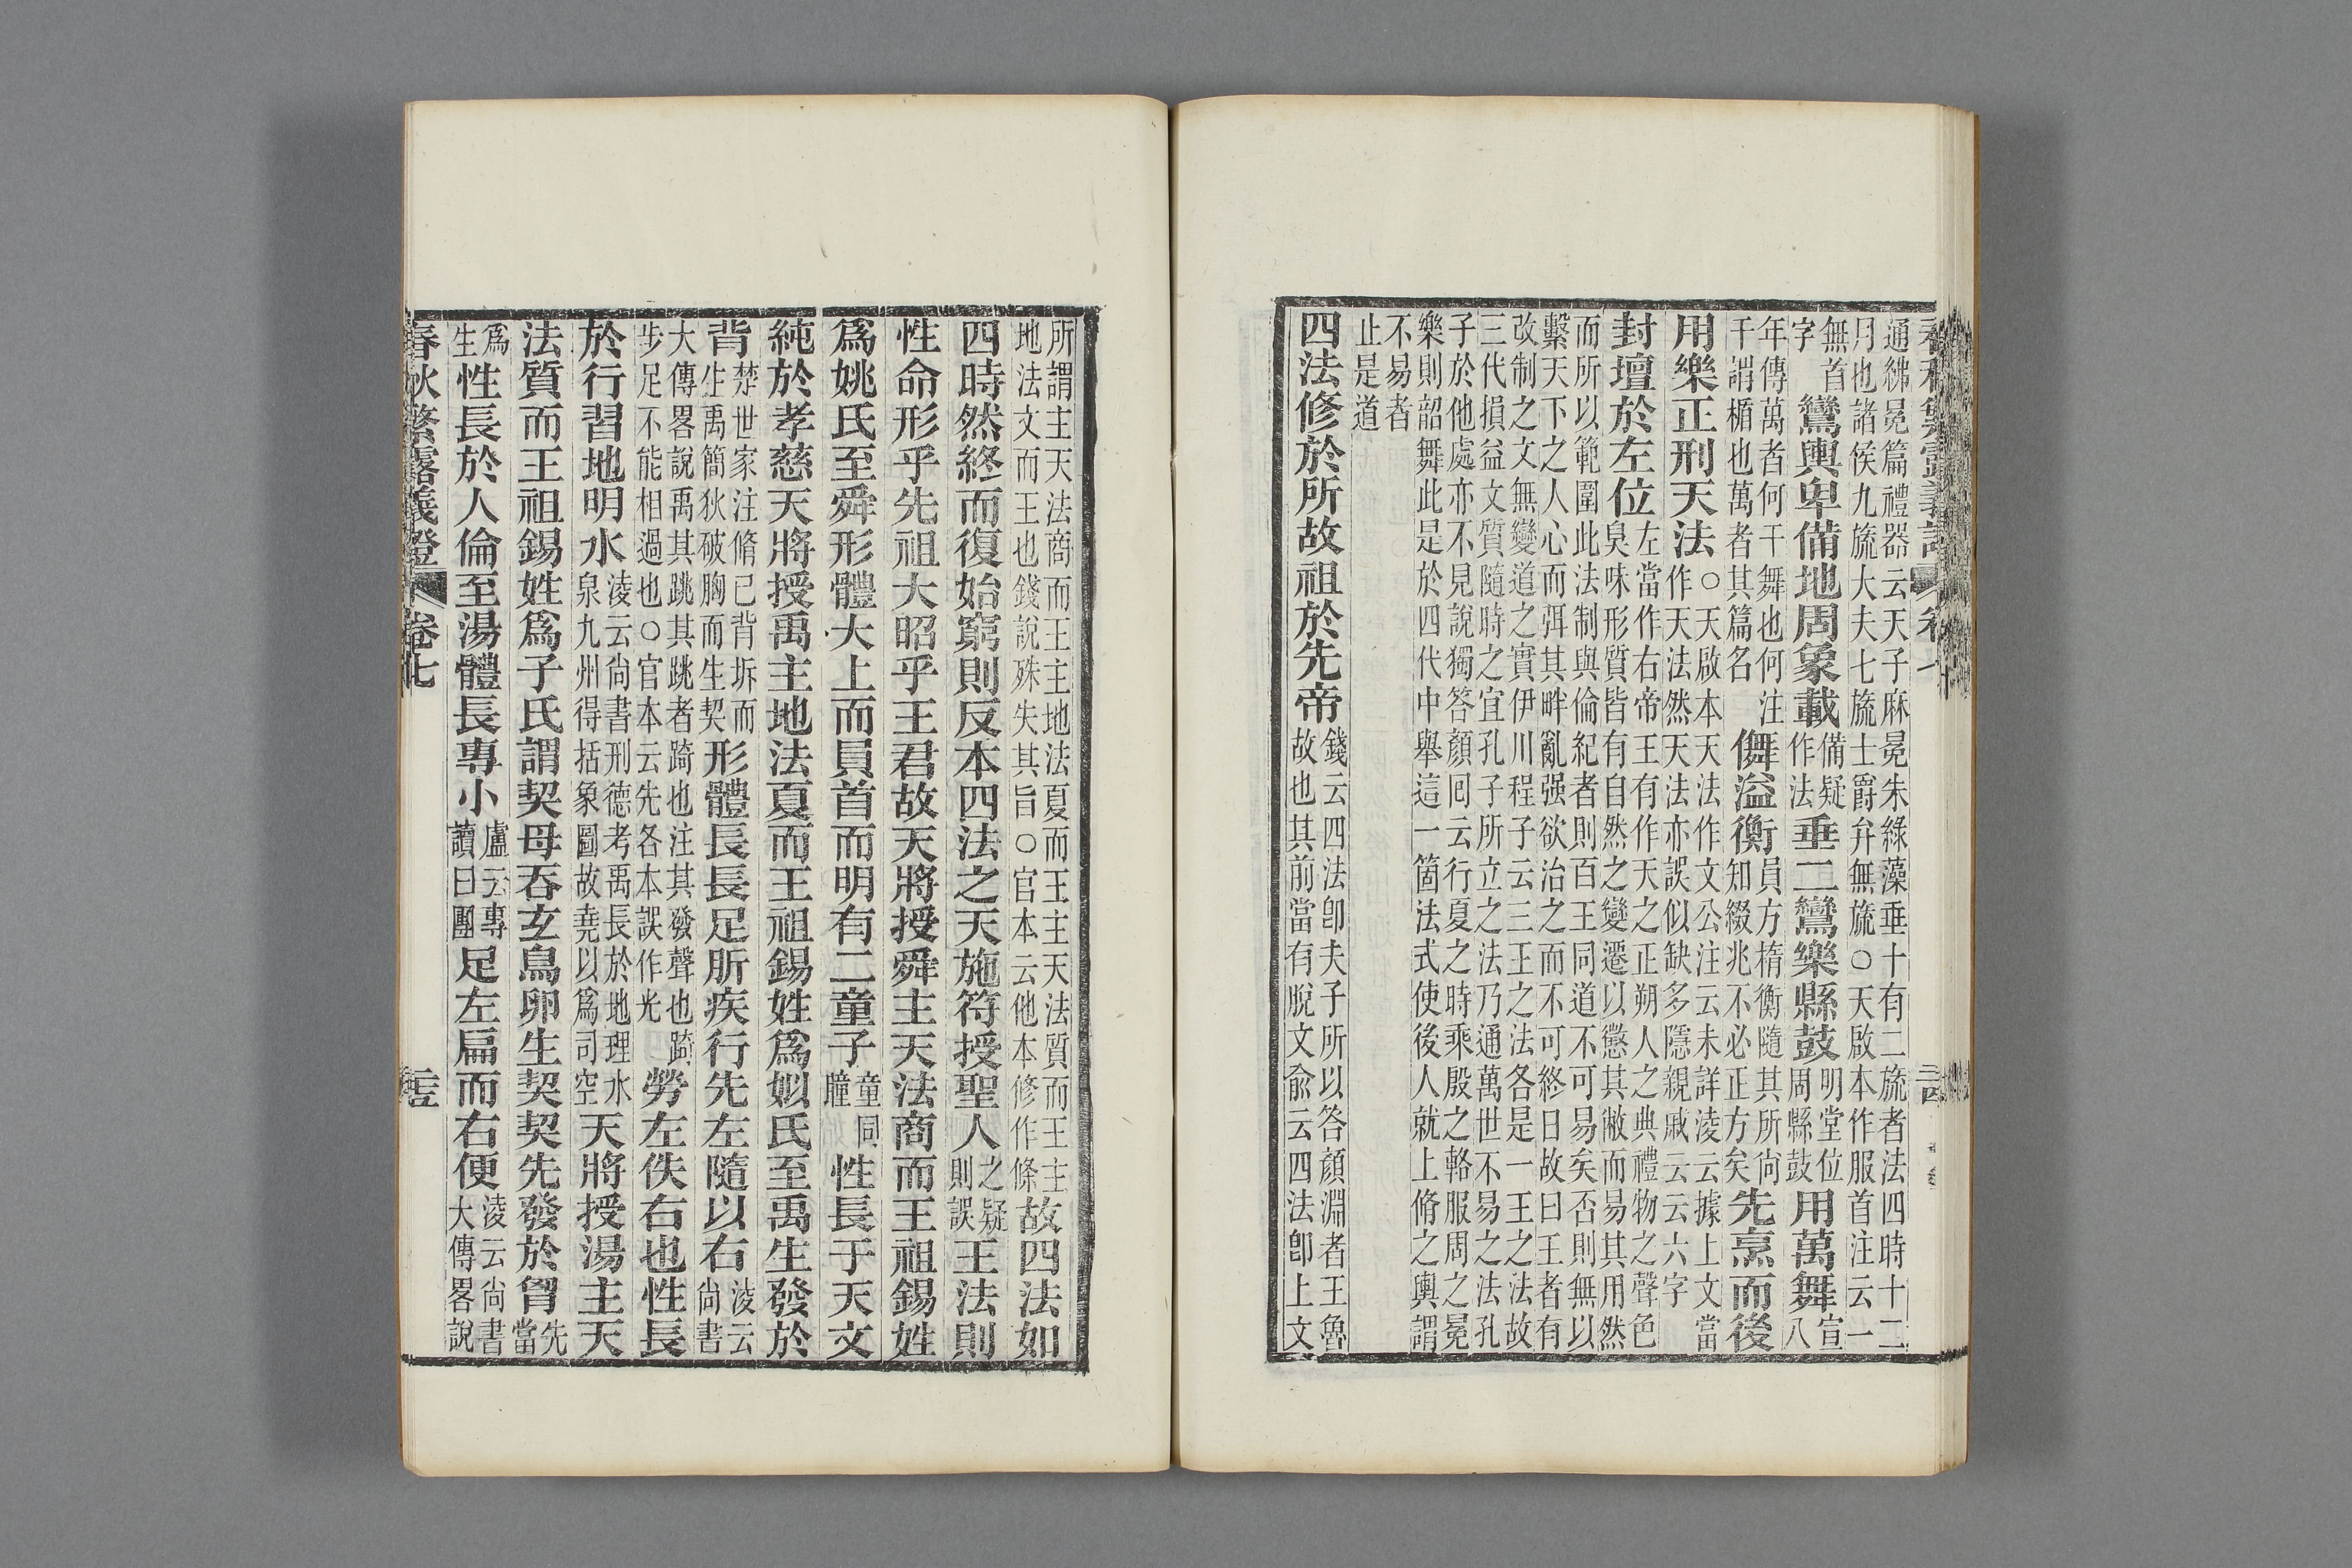 春秋繁露義證 卷七 三四
通紼冕篇禮器云天子麻冕朱綠藻垂十有二旒者法四時十二
月也諸侯九旒大夫七旒士爵弁無旒○天啟本作服首注云一
無首字鸞輿卑備地周象載備疑作法垂二鸞樂縣鼓明堂位周縣鼓用萬舞宣八
年傳萬者何干舞也何注干謂楯也萬者其篇名儛溢衡員方楕衡隨其所尚知綴兆不必正方矣先烹而後
用樂正刑天法○天啟本天法作文公注云未詳淩云據上文當作天法然天法亦誤似缺多隱親戚云云六字
封壇於左位左當作右帝王有作天之正朔人之典禮物之聲色臭味形質皆有自然之變遷以懲其敝而易其用然
而所以範圍此法制與倫紀者則百王同道不可易矣否則無以
繫天下之人心而弭其畔亂强欲治之而不可終日故曰王者有
改制之文無變道之實伊川程子云三王之法各是一王之法故
三代損益文質隨時之宜孔子所立之法乃通萬世不易之法孔
子於他處亦不見說獨答顏囘云行夏之時乘殷之輅服周之冕
樂則韶舞此是於四代中舉這一箇法式使後人就上脩之輿謂
不易者
止是道
四法修於所故祖於先帝錢云四法卽夫子所以答顏淵者王魯故也其前當有脫文俞云四法卽上文
所謂主天法商而王主地法夏而王主天法質而王主
地法文而王也錢說殊失其旨○官本云他本修作條故四法如
四時然終而復始窮則反本四法之天施符授聖人之疑則誤王法則
性命形乎先祖大昭乎王君故天將授舜主天法商而王祖錫姓
爲姚氏至舜形體大上而員首而明有二童子童同瞳性長于天文
純於孝慈天將授禹主地法夏而王祖錫姓爲姒氏至禹生發於
背楚世家注脩已背坼而生禹簡狄破胸而生契形體長長足肵疾行先左隨以右淩云尙書
大傳畧說禹其跳其跳者踦也注其發聲也踦步足不能相過也○官本云先各本誤作光勞左佚右也性長
於行習地明水淩云尙書刑德考禹長於地理水泉九州得括象圖故堯以爲司空天將授湯主天
法質而王祖錫姓爲子氏謂契母吞玄鳥卵生契契先發於胷先當
爲生性長於人倫至湯體長專小盧云專讀曰團足左扁而右便淩云尙書大傳畧說
春秋繁露義證 卷七 三五